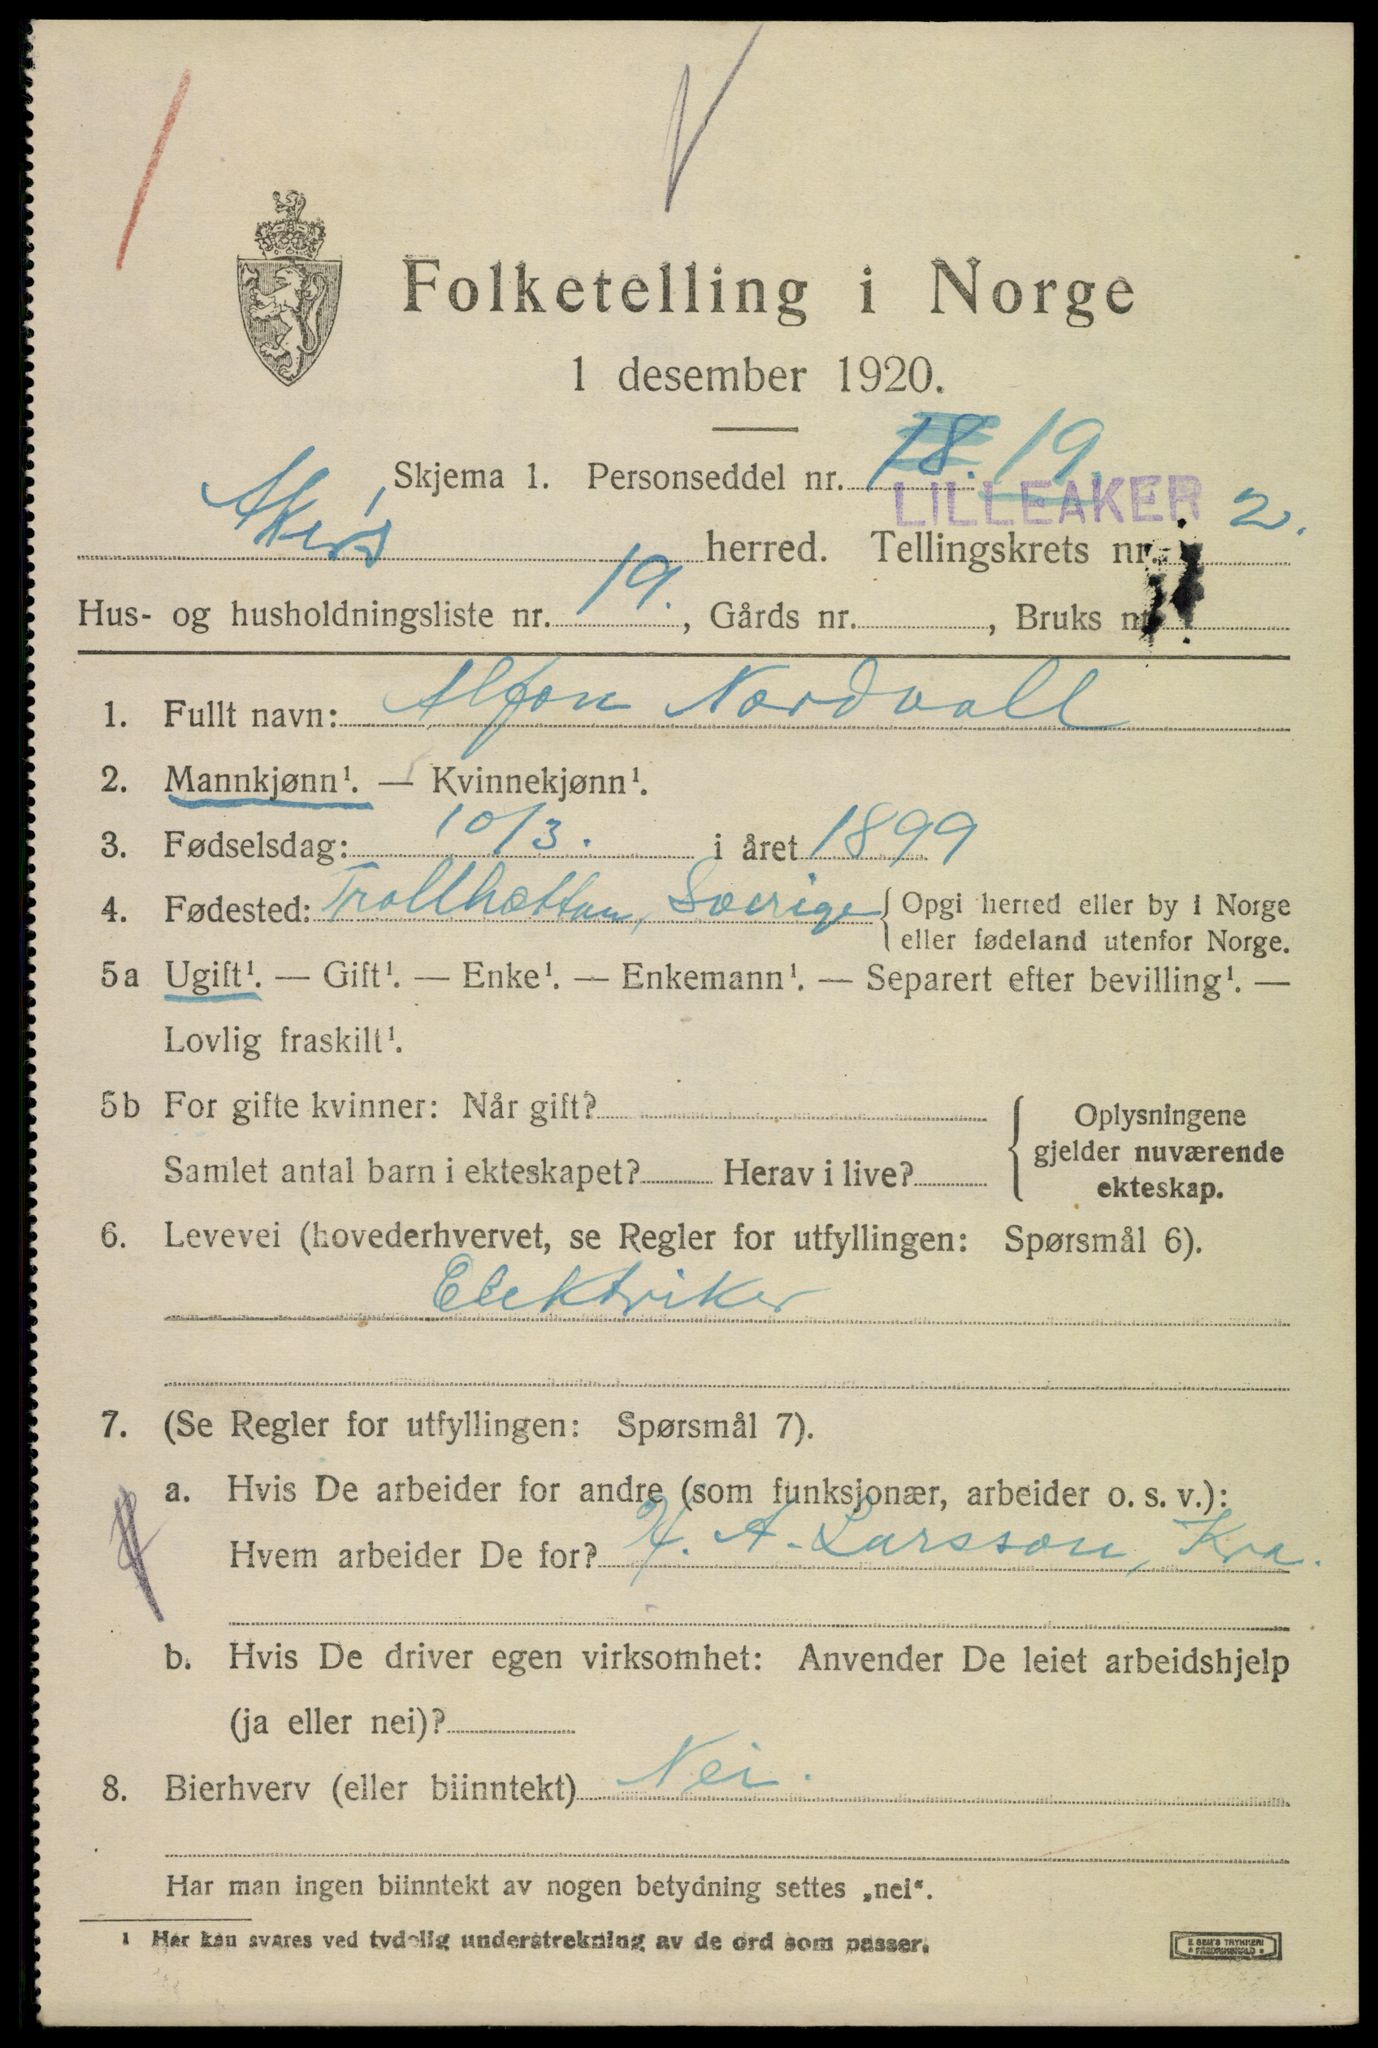 Folketelling i Norge
1 desember 1920.
Skjema 1. Personseddel nr. 18. 19.
LILLEAKER
Akers herred. Tellingskrets nr. 2.
Hus- og husholdningsliste nr. 19., Gårds nr. , Bruks nr.
1. Fullt navn: Alfon Nordvall
2. Mannkjønn¹. — Kvinnekjønn¹.
3. Fødselsdag: 10/3. i året 1899
4. Fødested: Trollhættan, Sverige { Opgi herred eller by i Norge
eller fødeland utenfor Norge.
5a Ugift¹. — Gift¹. — Enke¹. — Enkemann¹. — Separert efter bevilling¹. —
Lovlig fraskilt¹.
5b For gifte kvinner: Når gift?
Samlet antal barn i ekteskapet? Herav i live?
Oplysningene
gjelder nuværende
ekteskap.
6. Levevei (hovederhvervet, se Regler for utfyllingen: Spørsmål 6).
Elektriker
7. (Se Regler for utfyllingen: Spørsmål 7).
a. Hvis De arbeider for andre (som funksjonær, arbeider o. s. v.):
Hvem arbeider De for? H. A. Larsson, Kra.
b. Hvis De driver egen virksomhet: Anvender De leiet arbeidshjelp
(ja eller nei)?
8. Bierhverv (eller biinntekt) Nei.
Har man ingen biinntekt av nogen betydning settes „nei“.
1 Her kan svares ved tydelig understrekning av de ord som passer.
E SEM'S TRYKKERI
FREDRIKSHALD